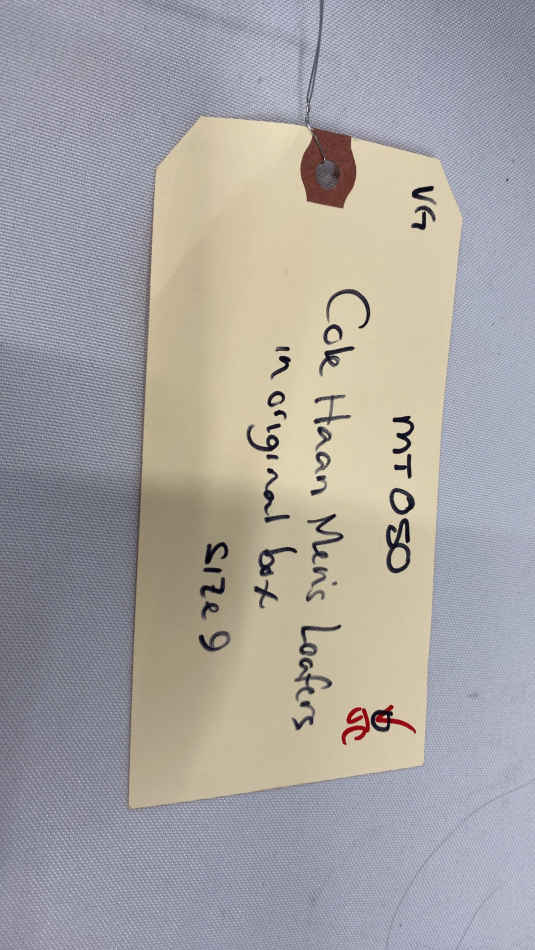 VG
MT 050
Cole Haan Men's Loafers
in original box
Size 9